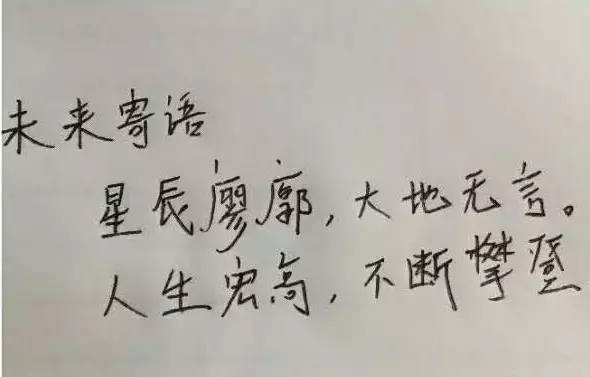 未来寄语
星辰廖廓，大地无言。
人生宏高，不断攀登